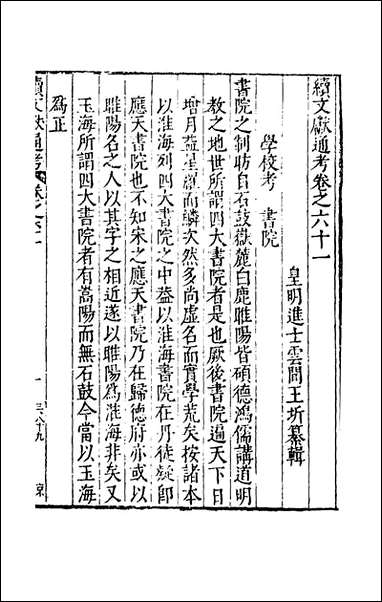 續文獻通考卷之六十一
皇明進士雲間王圻纂輯
學校考　書院
書院之制昉自石鼓嶽麓白鹿睢陽皆碩德鴻儒講道明
教之地世所謂四大書院者是也厥後書院遍天下日
增月益星羅而鱗次然多尚虛名而實學荒矣按諸本
以淮海列四大書院之中益以淮海書院在丹徒疑卽
應天書院也不知宋之應天書院乃在歸德府亦或以
睢陽名之人以其字之相近遂以睢陽為淮海非矣又
玉海所謂四大書院者有嵩陽而無石鼓今當以玉海
爲正
續文獻通考 卷之六十一
一